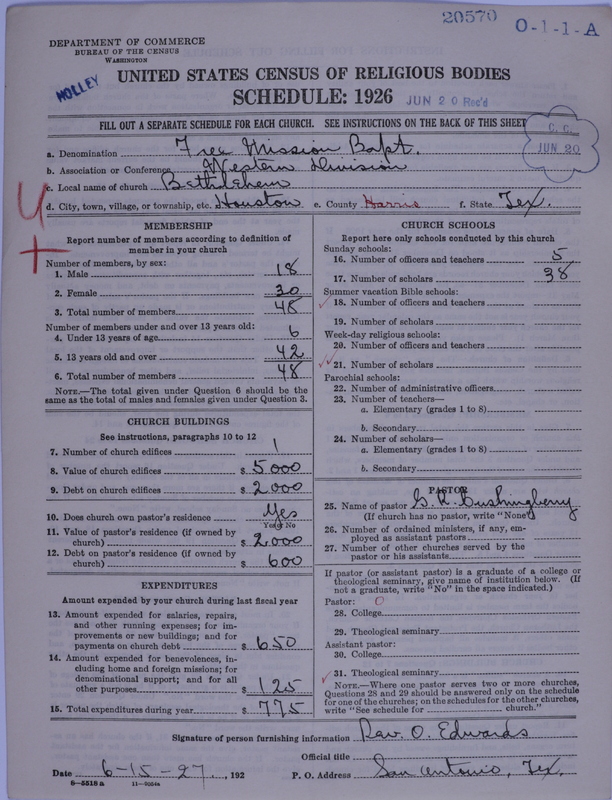 20570
O-1-1-A
DEPARTMENT OF COMMERCE
BUREAU OF THE CENSUS
WASHINGTON
MOLLEY
UNITED STATES CENSUS OF RELIGIOUS BODIES
SCHEDULE: 1926
JUN 20 Rec'd
FILL OUT A SEPARATE SCHEDULE FOR EACH CHURCH. SEE INSTRUCTIONS ON THE BACK OF THIS SHEET
C. C.
JUN 20
a. Denomination Free Mission Bapt.
b. Association or Conference Western Division
c. Local name of church Bethlehem
d. City, town, village, or township, etc. Houston e. County Harris f. State Tex.
MEMBERSHIP
Report number of members according to definition of
member in your church
Number of members, by sex:
1. Male 18
2. Female 30
3. Total number of members 48
Number of members under and over 13 years old:
4. Under 13 years of age 6
5. 13 years old and over 42
6. Total number of members 48
NOTE.—The total given under Question 6 should be
same as the total of males and females given under Question 3.
CHURCH BUILDINGS
See instructions, paragraphs 10 to 12
7. Number of church edifices 1
8. Value of church edifices $ 5000
9. Debt on church edifices $ 2000
10. Does church own pastor's residence Yes
Yes or No
11. Value of pastor's residence (if owned by
church) $ 2000
12. Debt on pastor's residence (if owned by
church) $ 600
EXPENDITURES
Amount expended by your church during last fiscal year
13. Amount expended for salaries, repairs,
and other running expenses; for im-
provements or new buildings; and for
payments on church debt $ 650
14. Amount expended for benevolences, in-
cluding home and foreign missions; for
denominational support; and for all
other purposes $ 125
15. Total expenditures during year $ 775
CHURCH SCHOOLS
Report here only schools conducted by this church
Sunday schools:
16. Number of officers and teachers 5
17. Number of scholars 38
Summer vacation Bible schools:
18. Number of officers and teachers
19. Number of scholars
Week-day religious schools:
20. Number of officers and teachers
21. Number of scholars
Parochial schools:
22. Number of administrative officers
23. Number of teachers—
a. Elementary (grades 1 to 8)
b. Secondary
24. Number of scholars—
a. Elementary (grades 1 to 8)
b. Secondary
PASTOR
25. Name of pastor G. R. Cushingberry
(If church has no pastor, write "None")
26. Number of ordained ministers, if any, em-
ployed as assistant pastors
27. Number of other churches served by the
pastor or his assistants
If pastor (or assistant pastor) is a graduate of a college or
theological seminary, give name of institution below. (If
not a graduate, write "No" in the space indicated.)
Pastor: 0
28. College
29. Theological seminary
Assistant pastor:
30. College
31. Theological seminary
NOTE.—Where one pastor serves two or more churches,
Questions 28 and 29 should be answered only on the schedule
for one of the churches; on the schedules for the other churches,
write "See schedule for church."
Signature of person furnishing information Rev. O. Edwards
Official title
Date 6-15-27, 192 P. O. Address San Antonio, Tex.
8-5518 a